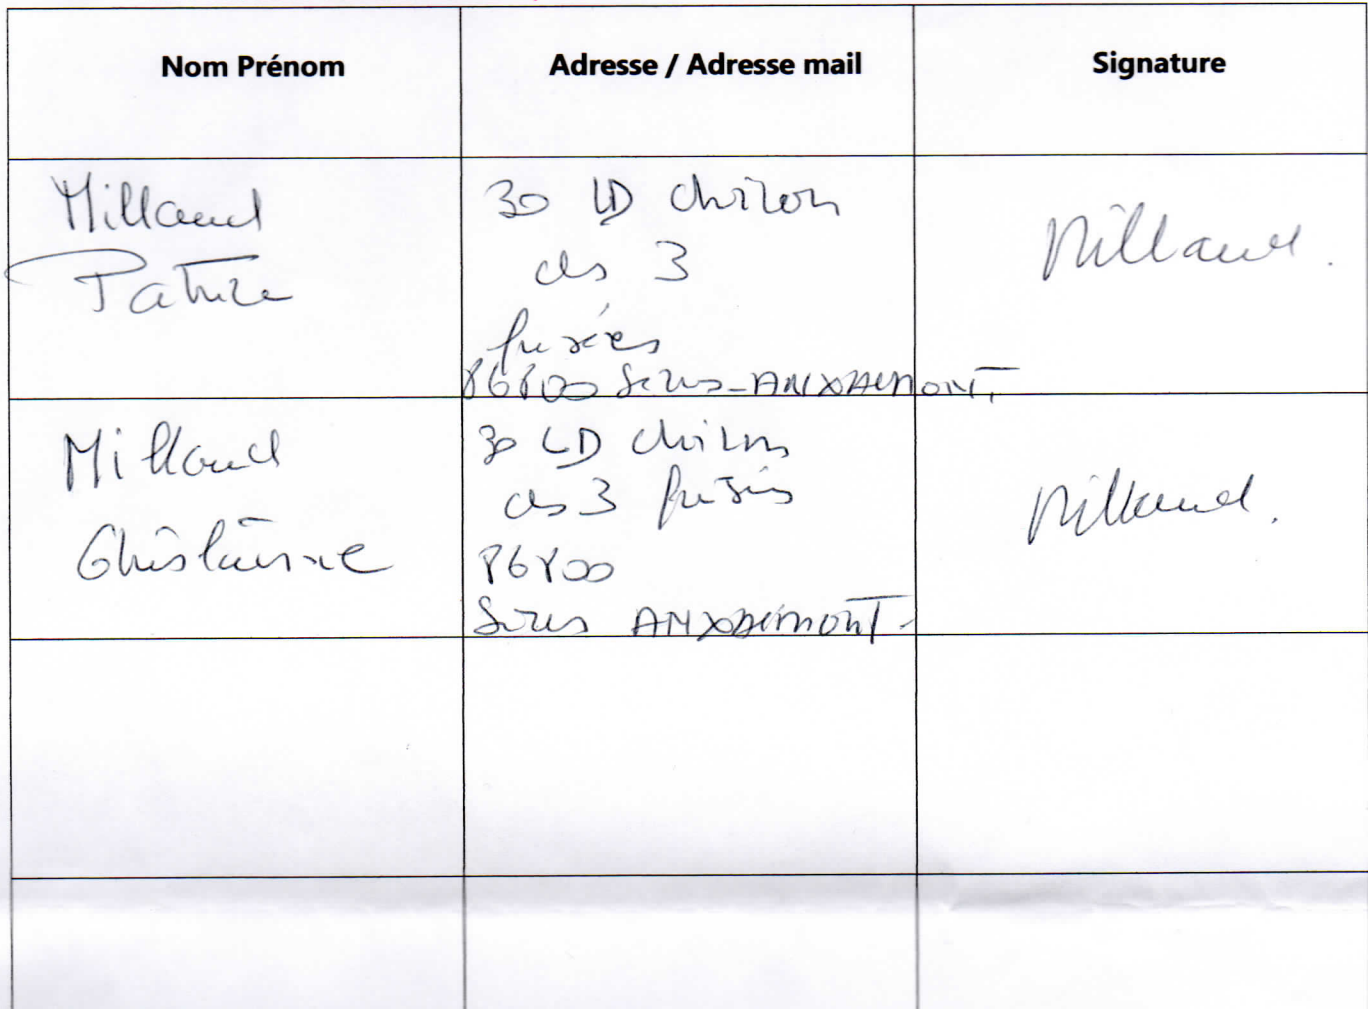 Nom Prénom
Adresse / Adresse mail
Signature
Millaud
Patrice
30 LD chiron
des 3
fusées
86800 Sèvres-ANXAUMONT.
Millaud.
Millaud
Ghislaine
30 LD chiron
des 3 fusées
86800
Sèvres ANXAUMONT-
Millaud.